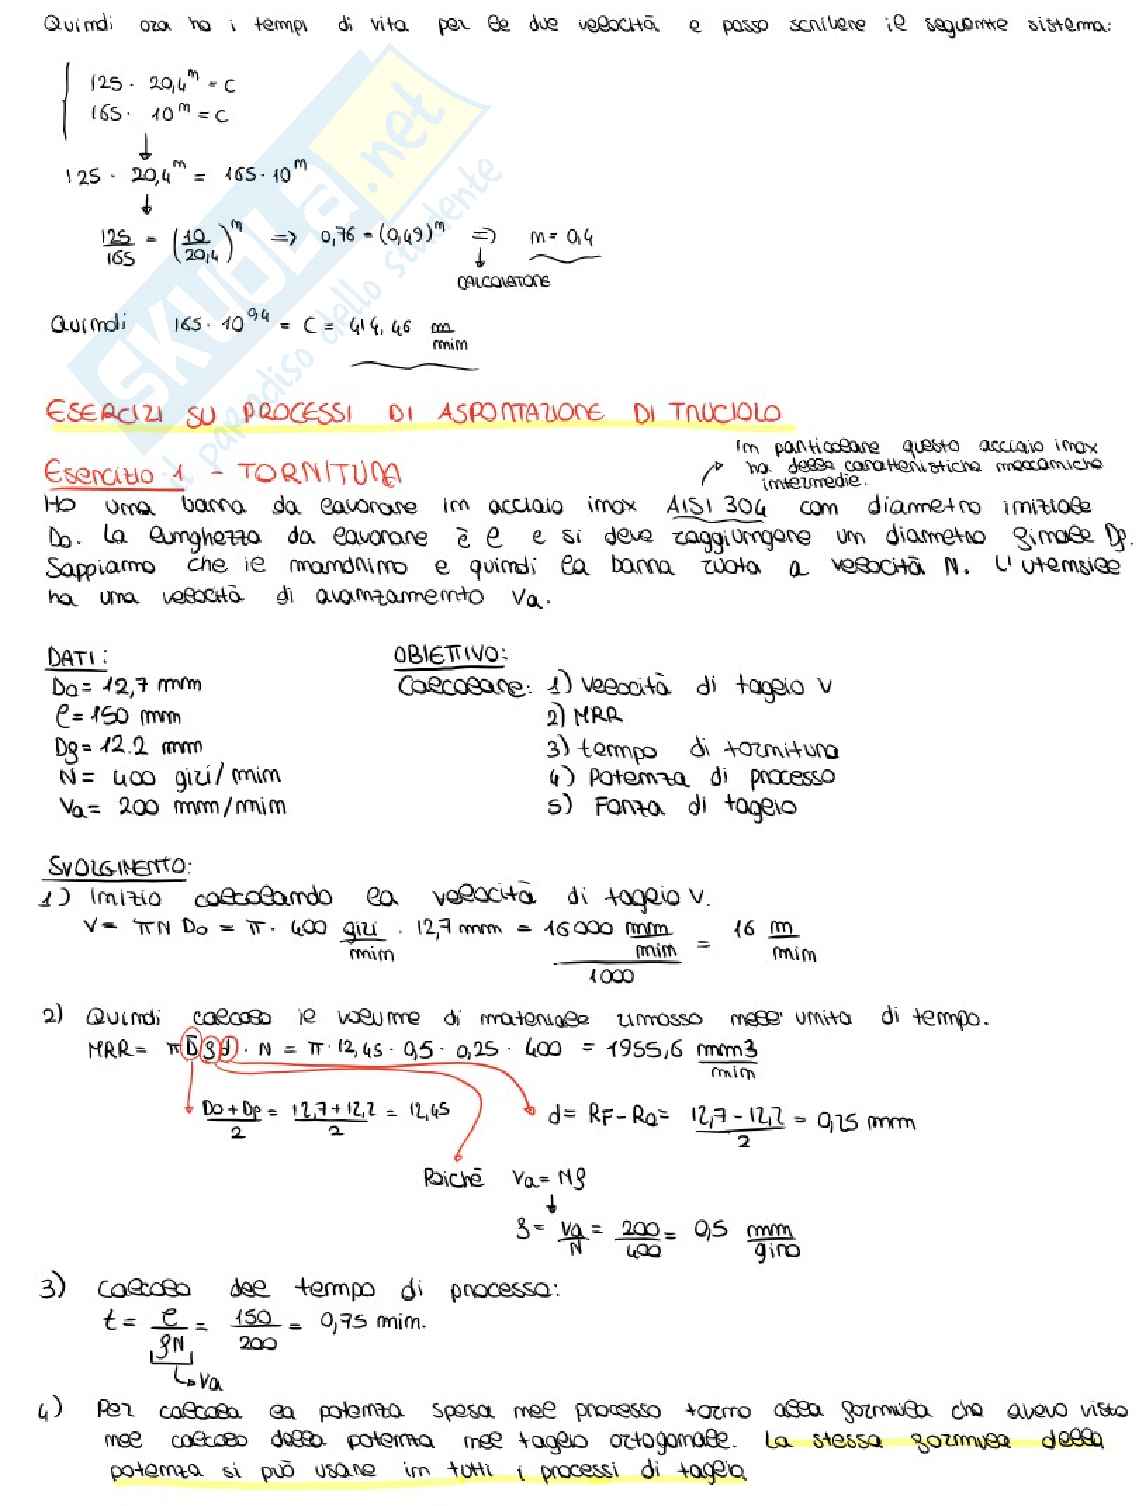 Quindi ora ho i tempi di vita per le due velocità e posso scrivere il seguente sistema:
125 · 20,4^m = C
165 · 10^m = C
125 · 20,4^m = 165 · 10^m
125/165 = (10/20,4)^m => 0,76 = (0,49)^m => m = 0,4
CALCOLATORE
Quindi 165 · 10^0,4 = C = 414,46 m/min
ESERCIZI SU PROCESSI DI ASPORTAZIONE DI TRUCIOLO
Esercizio 1 - TORNITURA
In particolare questo acciaio inox
ha delle caratteristiche meccaniche
intermedie.
Ho una barra da lavorare in acciaio inox AISI 304 con diametro iniziale
Do. La lunghezza da lavorare è l e si deve raggiungere un diametro finale Df.
Sappiamo che il mandrino e quindi la barra ruota a velocità N. L'utensile
ha una velocità di avanzamento Va.
DATI:
Do = 12,7 mm
l = 150 mm
Df = 12.2 mm
N = 400 giri/min
Va = 200 mm/min
OBIETTIVO:
Calcolare: 1) Velocità di taglio v
2) MRR
3) tempo di tornitura
4) Potenza di processo
5) Forza di taglio
SVOLGIMENTO:
1) Inizio calcolando la velocità di taglio v.
V = πN Do = π · 400 giri/min · 12,7 mm = 16000 mm/min / 1000 = 16 m/min
2) Quindi calcolo il volume di materiale rimosso nell'unita di tempo.
MRR = πD̄fd · N = π · 12,45 · 0,5 · 0,25 · 400 = 1955,6 mm3/min
Do + Df/2 = 12,7 + 12,2/2 = 12,45
d = RF - Ro = 12,7 - 12,2/2 = 0,25 mm
Poiché Va = Nf
f = Va/N = 200/400 = 0,5 mm/giro
3) Calcolo del tempo di processo:
t = l/fN = 150/200 = 0,75 min.
Va
4) Per calcola la potenza spesa nel processo torno alla formula che avevo visto
nel calcolo della potenza nel taglio ortogonale. La stessa formula della
potenza si può usare in tutti i processi di taglio
SKUOLA.net
il paradiso dello studente